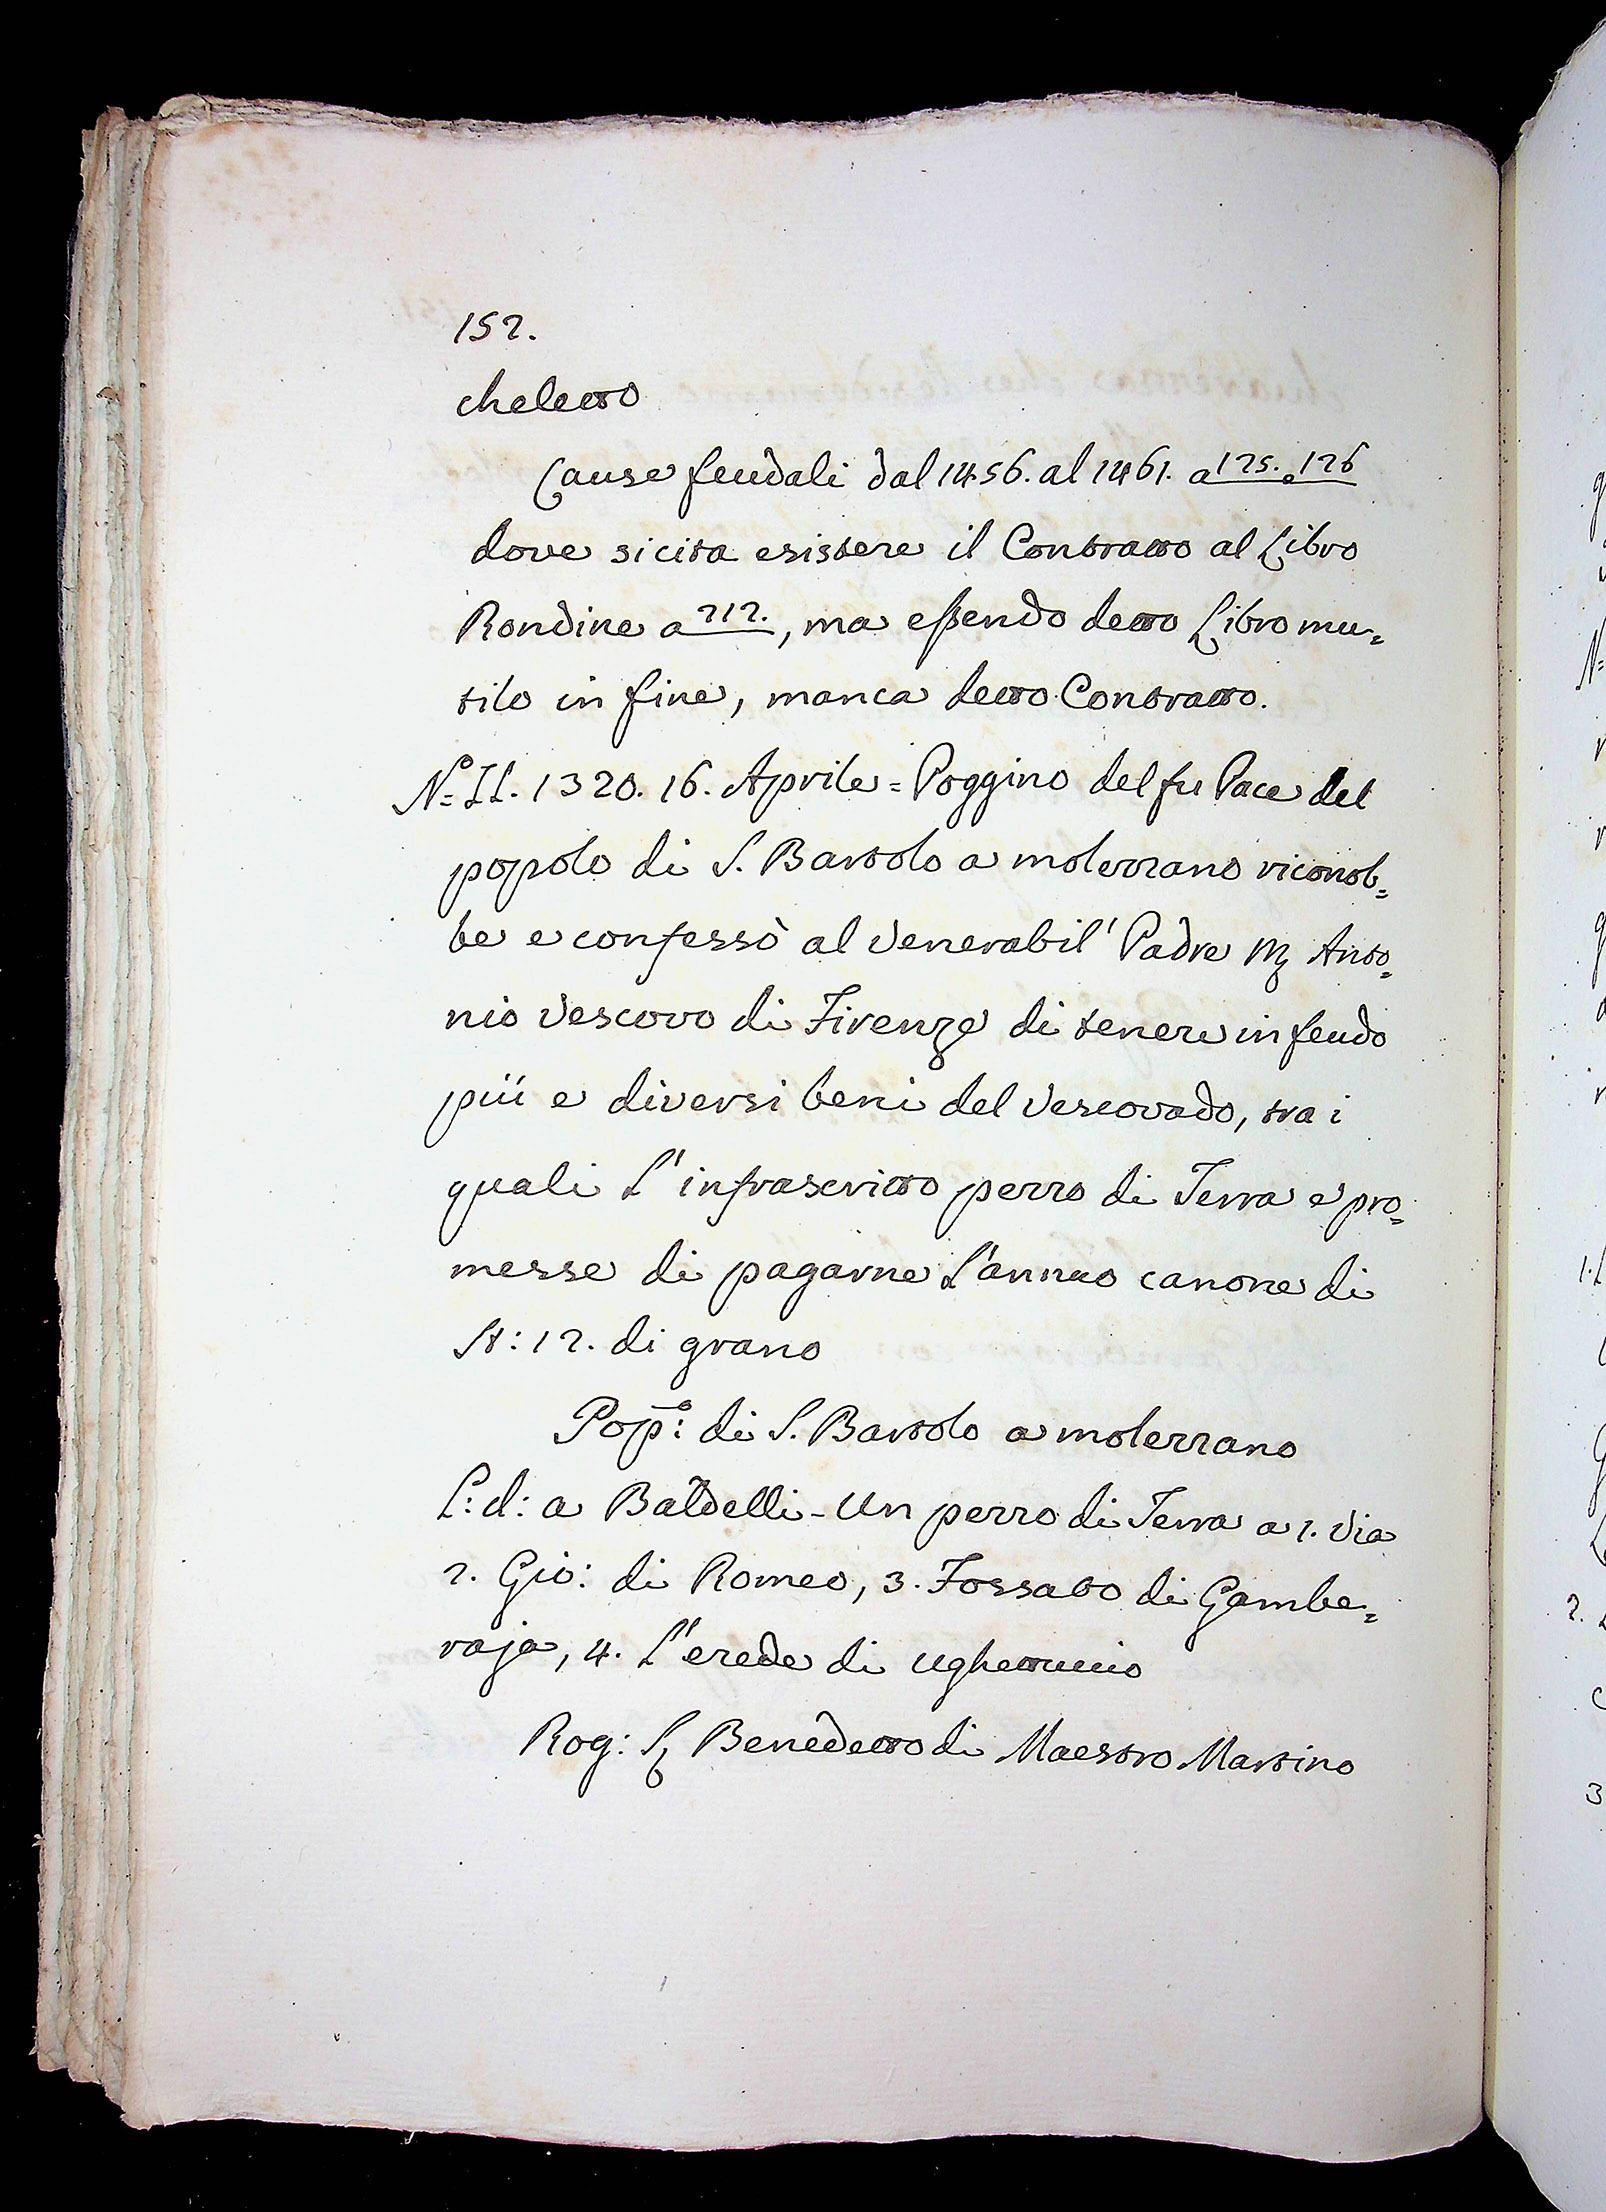 152.
cheletto
Cause feudali dal 1456. al 1461. a 125. e 126
dove si cita esistere il Contratto al Libro
Rondine a 212., ma essendo detto Libro mu=
tilo in fine, manca detto Contratto.
N.º II. 1320. 16. Aprile = Poggino del fu Pace del
popolo di S. Bartolo a molezzano riconob=
be e confessò al Venerabil' Padre M Anto=
nio Vescovo di Firenze di tenere in feudo
più e diversi beni del Vescovado, tra i
quali l'infrascritto pezzo di Terra e pro=
messe di pagarne l'annuo canone di
St: 12. di grano
Pop.º: di S. Bartolo a molezzano
L: d: a Baldelli - Un pezzo di Terra a 1. Via
2. Gio: di Romeo, 3. Fossato di Gambe=
raja, 4. L'erede di Ughettuccio
Rog: S Benedetto di Maestro Martino